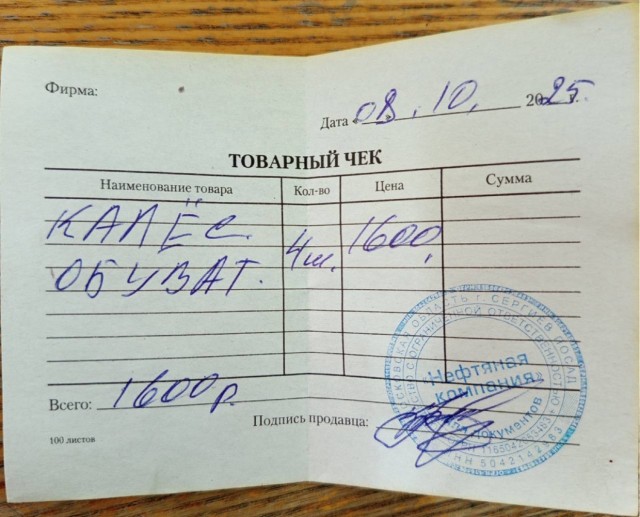 Фирма:
Дата «08.10. 2025 г.
ТОВАРНЫЙ ЧЕК
Наименование товара Кол-во Цена Сумма
КАЛЁС. 4ш. 1600,
ОБУВАТ.
Всего: 1600 р.
Подпись продавца:
100 листов
МОСКОВСКАЯ ОБЛАСТЬ г. СЕРГИЕВ ПОСАД
ОБЩЕСТВО С ОГРАНИЧЕННОЙ ОТВЕТСТВЕННОСТЬЮ
"Нефтяная
компания»
для документов
ИНН 5042142383